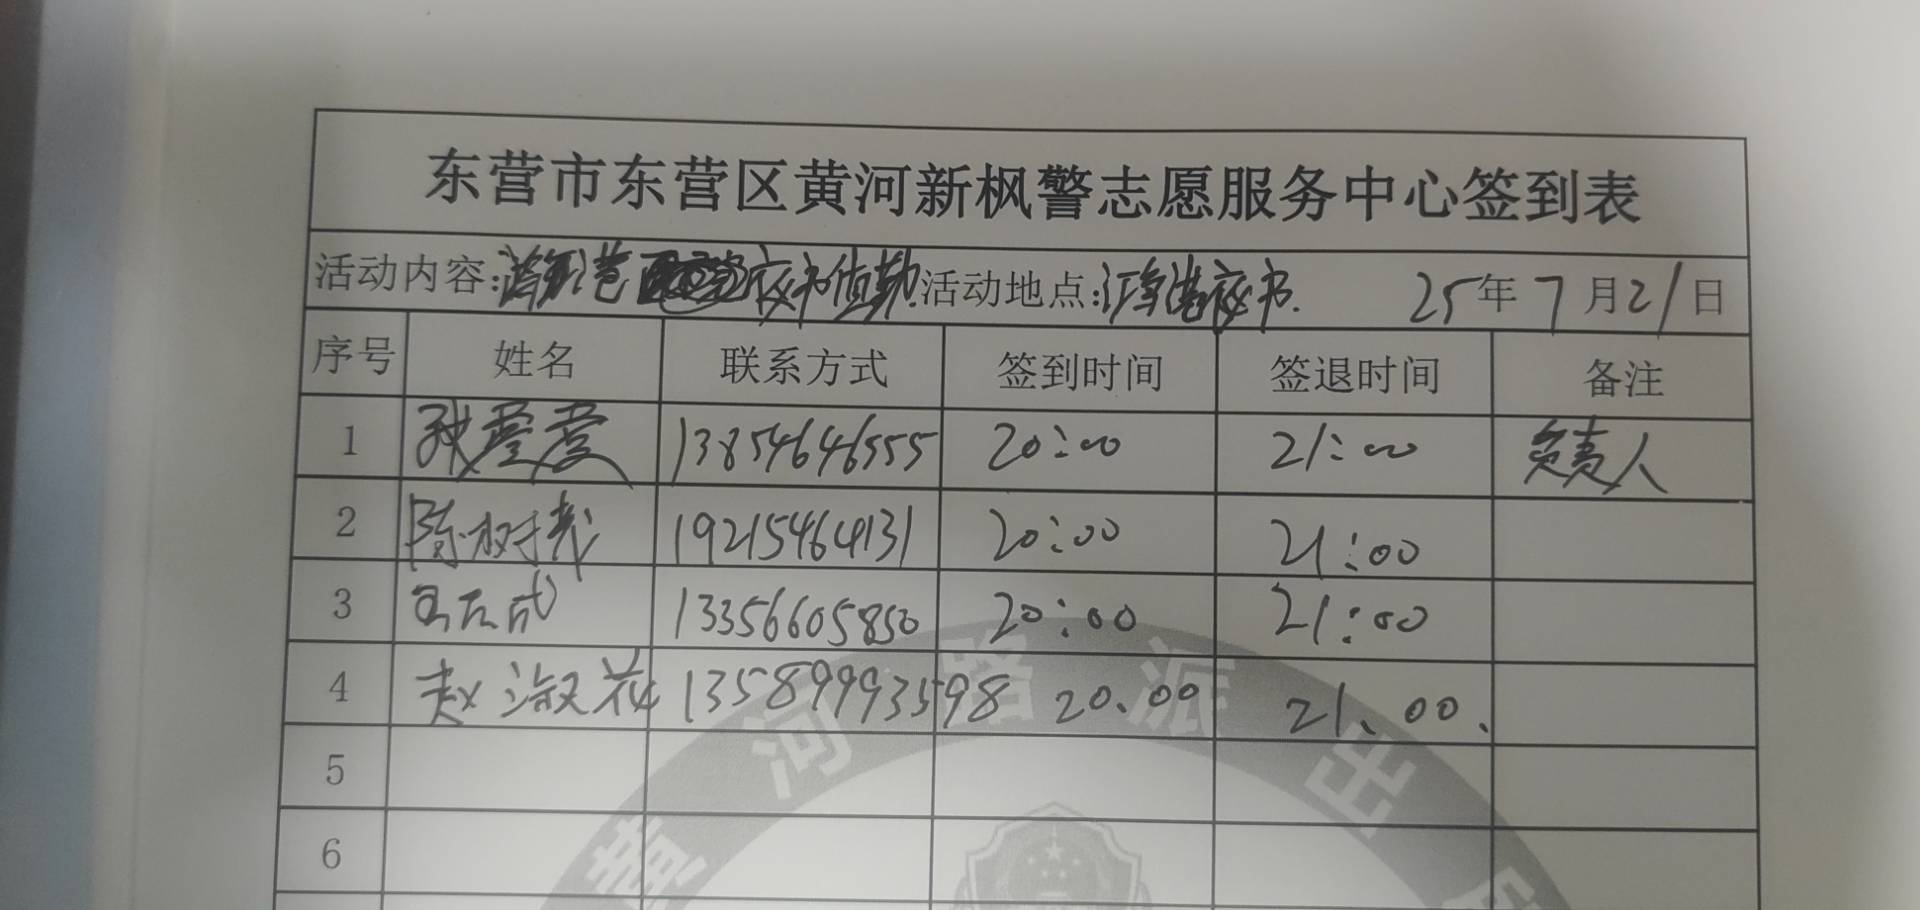 东营市东营区黄河新枫警志愿服务中心签到表
活动内容: 值勤 活动地点: 25年7月21日
序号 姓名 联系方式 签到时间 签退时间 备注
1 13854646555 20:00 21:00 负责人
2 陈树 19215464131 20:00 21:00
3 13356605850 20:00 21:00
4 赵淑花 13589993598 20.00 21.00.
5
6
黄河路派出